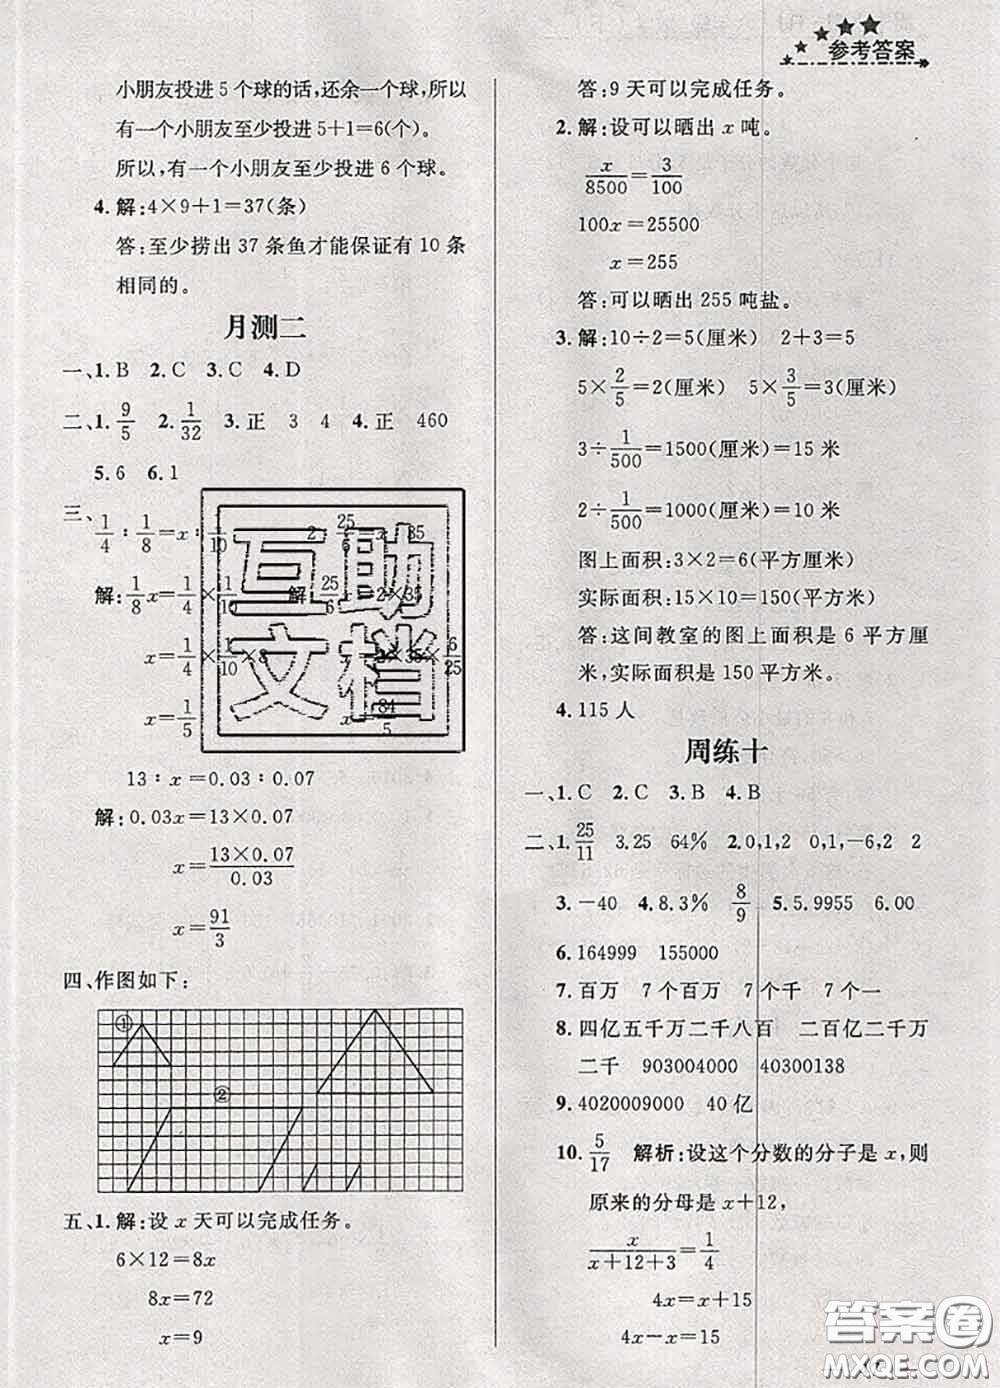 参考答案
小朋友投进 5 个球的话,还余一个球,所以
有一个小朋友至少投进 5+1=6(个)。
所以,有一个小朋友至少投进 6 个球。
4. 解:4×9+1=37(条)
答:至少捞出 37 条鱼才能保证有 10 条
相同的。
月测二
一、1. B 2. C 3. C 4. D
二、1. 9/5 2. 1/32 3. 正 3 4 4. 正 460
5. 6 6. 1
三、1/4∶1/8=x∶1/10 25/6 x 35
解:1/8x=1/4×1/10 解 25/6 =2×35
x=1/4×1/10×8 x= ×35×6/25
x=1/5 x=84/5
13∶x=0.03∶0.07
解:0.03x=13×0.07
x=13×0.07/0.03
x=91/3
四、作图如下:
①
②
五、1. 解:设 x 天可以完成任务。
6×12=8x
8x=72
x=9
答:9 天可以完成任务。
2. 解:设可以晒出 x 吨。
x/8500=3/100
100x=25500
x=255
答:可以晒出 255 吨盐。
3. 解:10÷2=5(厘米) 2+3=5
5×2/5=2(厘米) 5×3/5=3(厘米)
3÷1/500=1500(厘米)=15 米
2÷1/500=1000(厘米)=10 米
图上面积:3×2=6(平方厘米)
实际面积:15×10=150(平方米)
答:这间教室的图上面积是 6 平方厘
米,实际面积是 150 平方米。
4. 115 人
周练十
一、1. C 2. C 3. B 4. B
二、1. 25/11 3.25 64% 2. 0,1,2 0,1,-6,2 2
3. -40 4. 8.3% 8/9 5. 5.9955 6.00
6. 164999 155000
7. 百万 7 个百万 7 个千 7 个一
8. 四亿五千万二千八百 二百亿二千万
二千 903004000 40300128
9. 4020009000 40 亿
10. 5/17 解析:设这个分数的分子是 x,则
原来的分母是 x+12,
x/x+12+3=1/4
4x=x+15
4x-x=15
互助
文档
答案圈
MXQE.COM